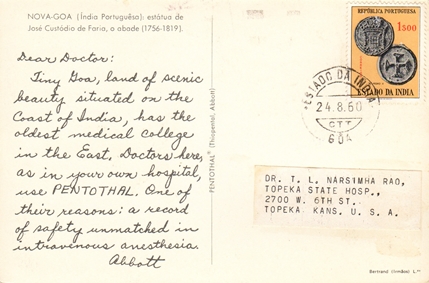 NOVA-GOA (Índia Portuguêsa): estátua de
José Custódio de Faria, o abade (1756-1819).
Dear Doctor:
Tiny Goa, land of scenic
beauty situated on the
Coast of India, has the
oldest medical College
in the East. Doctors here,
as in your own hospital,
use PENTOTHAL. One of
their reasons: a record
of safety unmatched in
intravenous anesthesia.
Abbott
PENTOTHAL® (Thiopental, Abbott)
REPÚBLICA PORTUGUESA
1$00
ESTADO DA INDIA
ESTADO DA INDIA
24.8.60
CTT
GÔA
DR. T. L. NARSIMHA RAO,
TOPEKA STATE HOSP.,
2700 W. 6TH ST.
TOPEKA KANS. U. S. A.
Bertrand (Irmãos) L.da